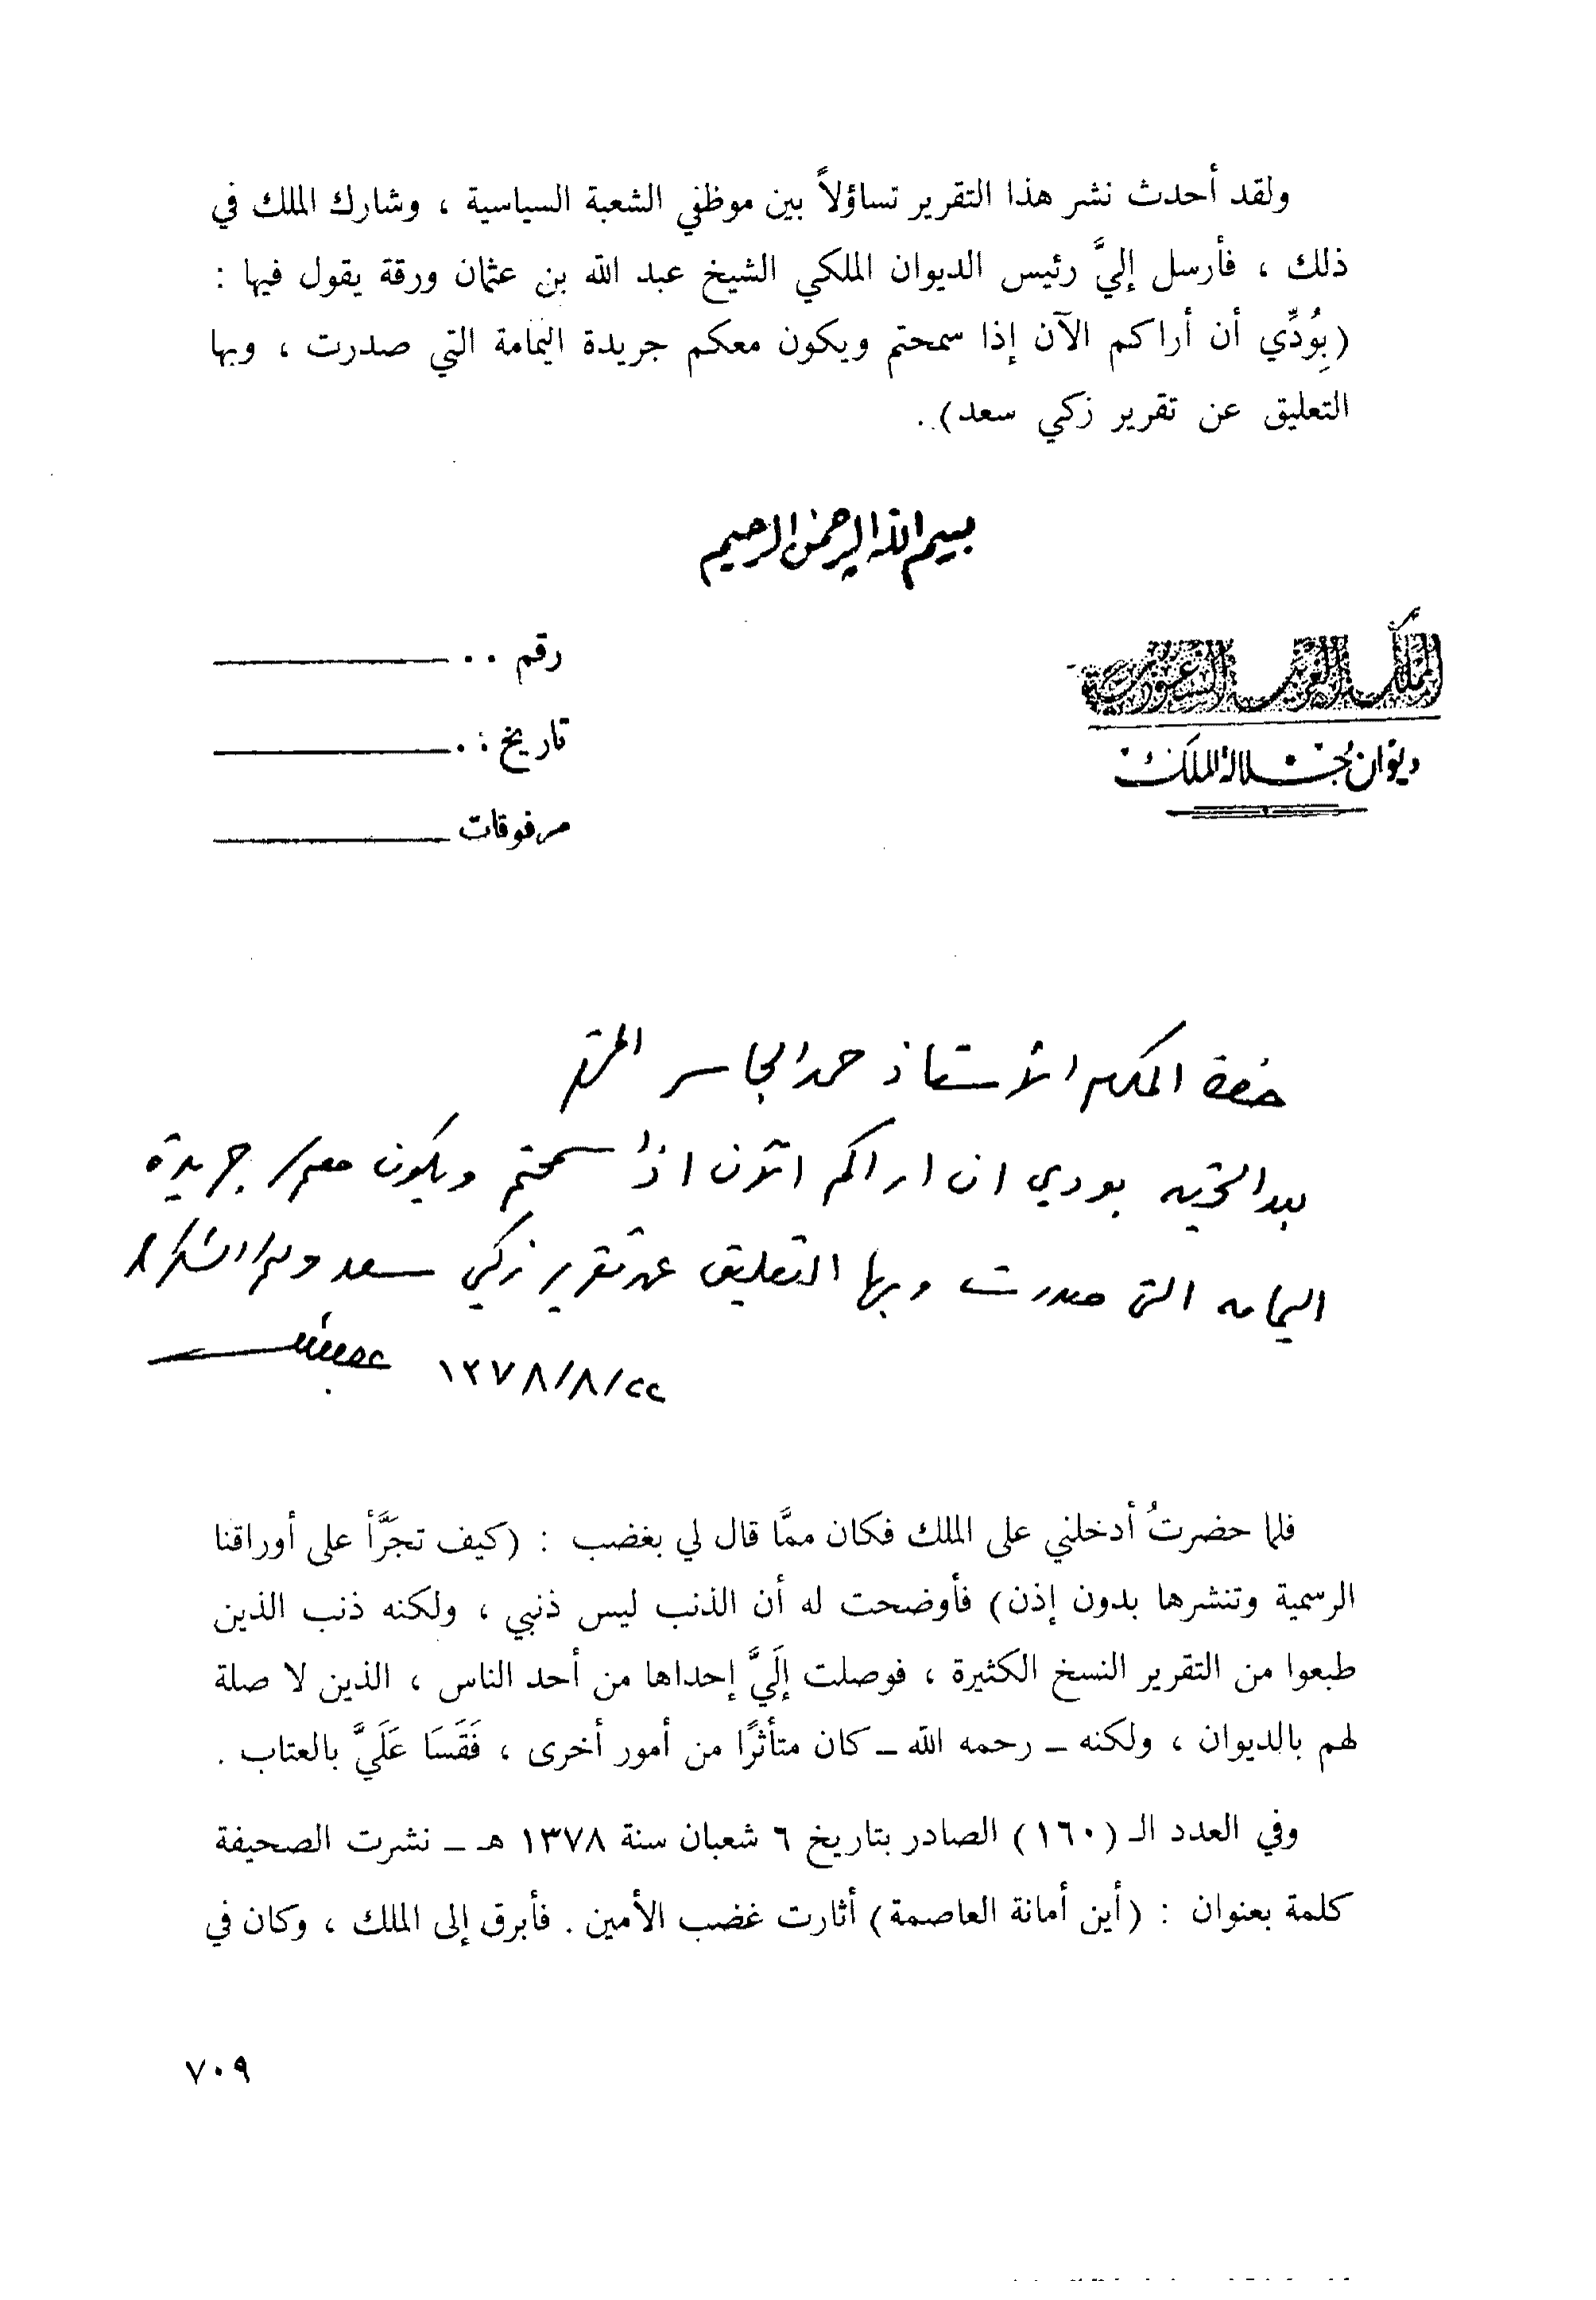 ولقد أحدث نشر هذا التقرير تساؤلاً بين موظفي الشعبة السياسية ، وشارك الملك في
ذلك ، فأرسل إليَّ رئيس الديوان الملكي الشيخ عبد الله بن عثمان ورقة يقول فيها :
(بِوُدِّي أن أراكم الآن إذا سمحتم ويكون معكم جريدة اليمامة التي صدرت ، وبها
التعليق عن تقرير زكي سعد) .
بسم الله الرحمن الرحيم
المملكة العربية السعودية
ديوان جلالة الملك
رقم ..
تاريخ ..
مرفوقات
حضرة المكرم الأستاذ حمد الجاسر المحترم
بعد التحية بودي ان اراكم الآن اذا سمحتم ويكون معكم جريدة
اليمامه التي صدرت وبها التعليق عن تقرير زكي سعد ولكم الشكر
١٣٧٨/٨/٢٢
فلما حضرتُ أدخلني على الملك فكان ممَّا قال لي بغضب : (كيف تجَرَّأ على أوراقنا
الرسمية وتنشرها بدون إذن) فأوضحت له أن الذنب ليس ذنبي ، ولكنه ذنب الذين
طبعوا من التقرير النسخ الكثيرة ، فوصلت إلَيَّ إحداها من أحد الناس ، الذين لا صلة
لهم بالديوان ، ولكنه ـ رحمه الله ـ كان متأثرًا من أمور أخرى ، فَقَسَا عَلَيَّ بالعتاب .
وفي العدد الـ (١٦٠) الصادر بتاريخ ٦ شعبان سنة ١٣٧٨ هـ ـ نشرت الصحيفة
كلمة بعنوان : (أين أمانة العاصمة) أثارت غضب الأمين . فأبرق إلى الملك ، وكان في
٧٠٩